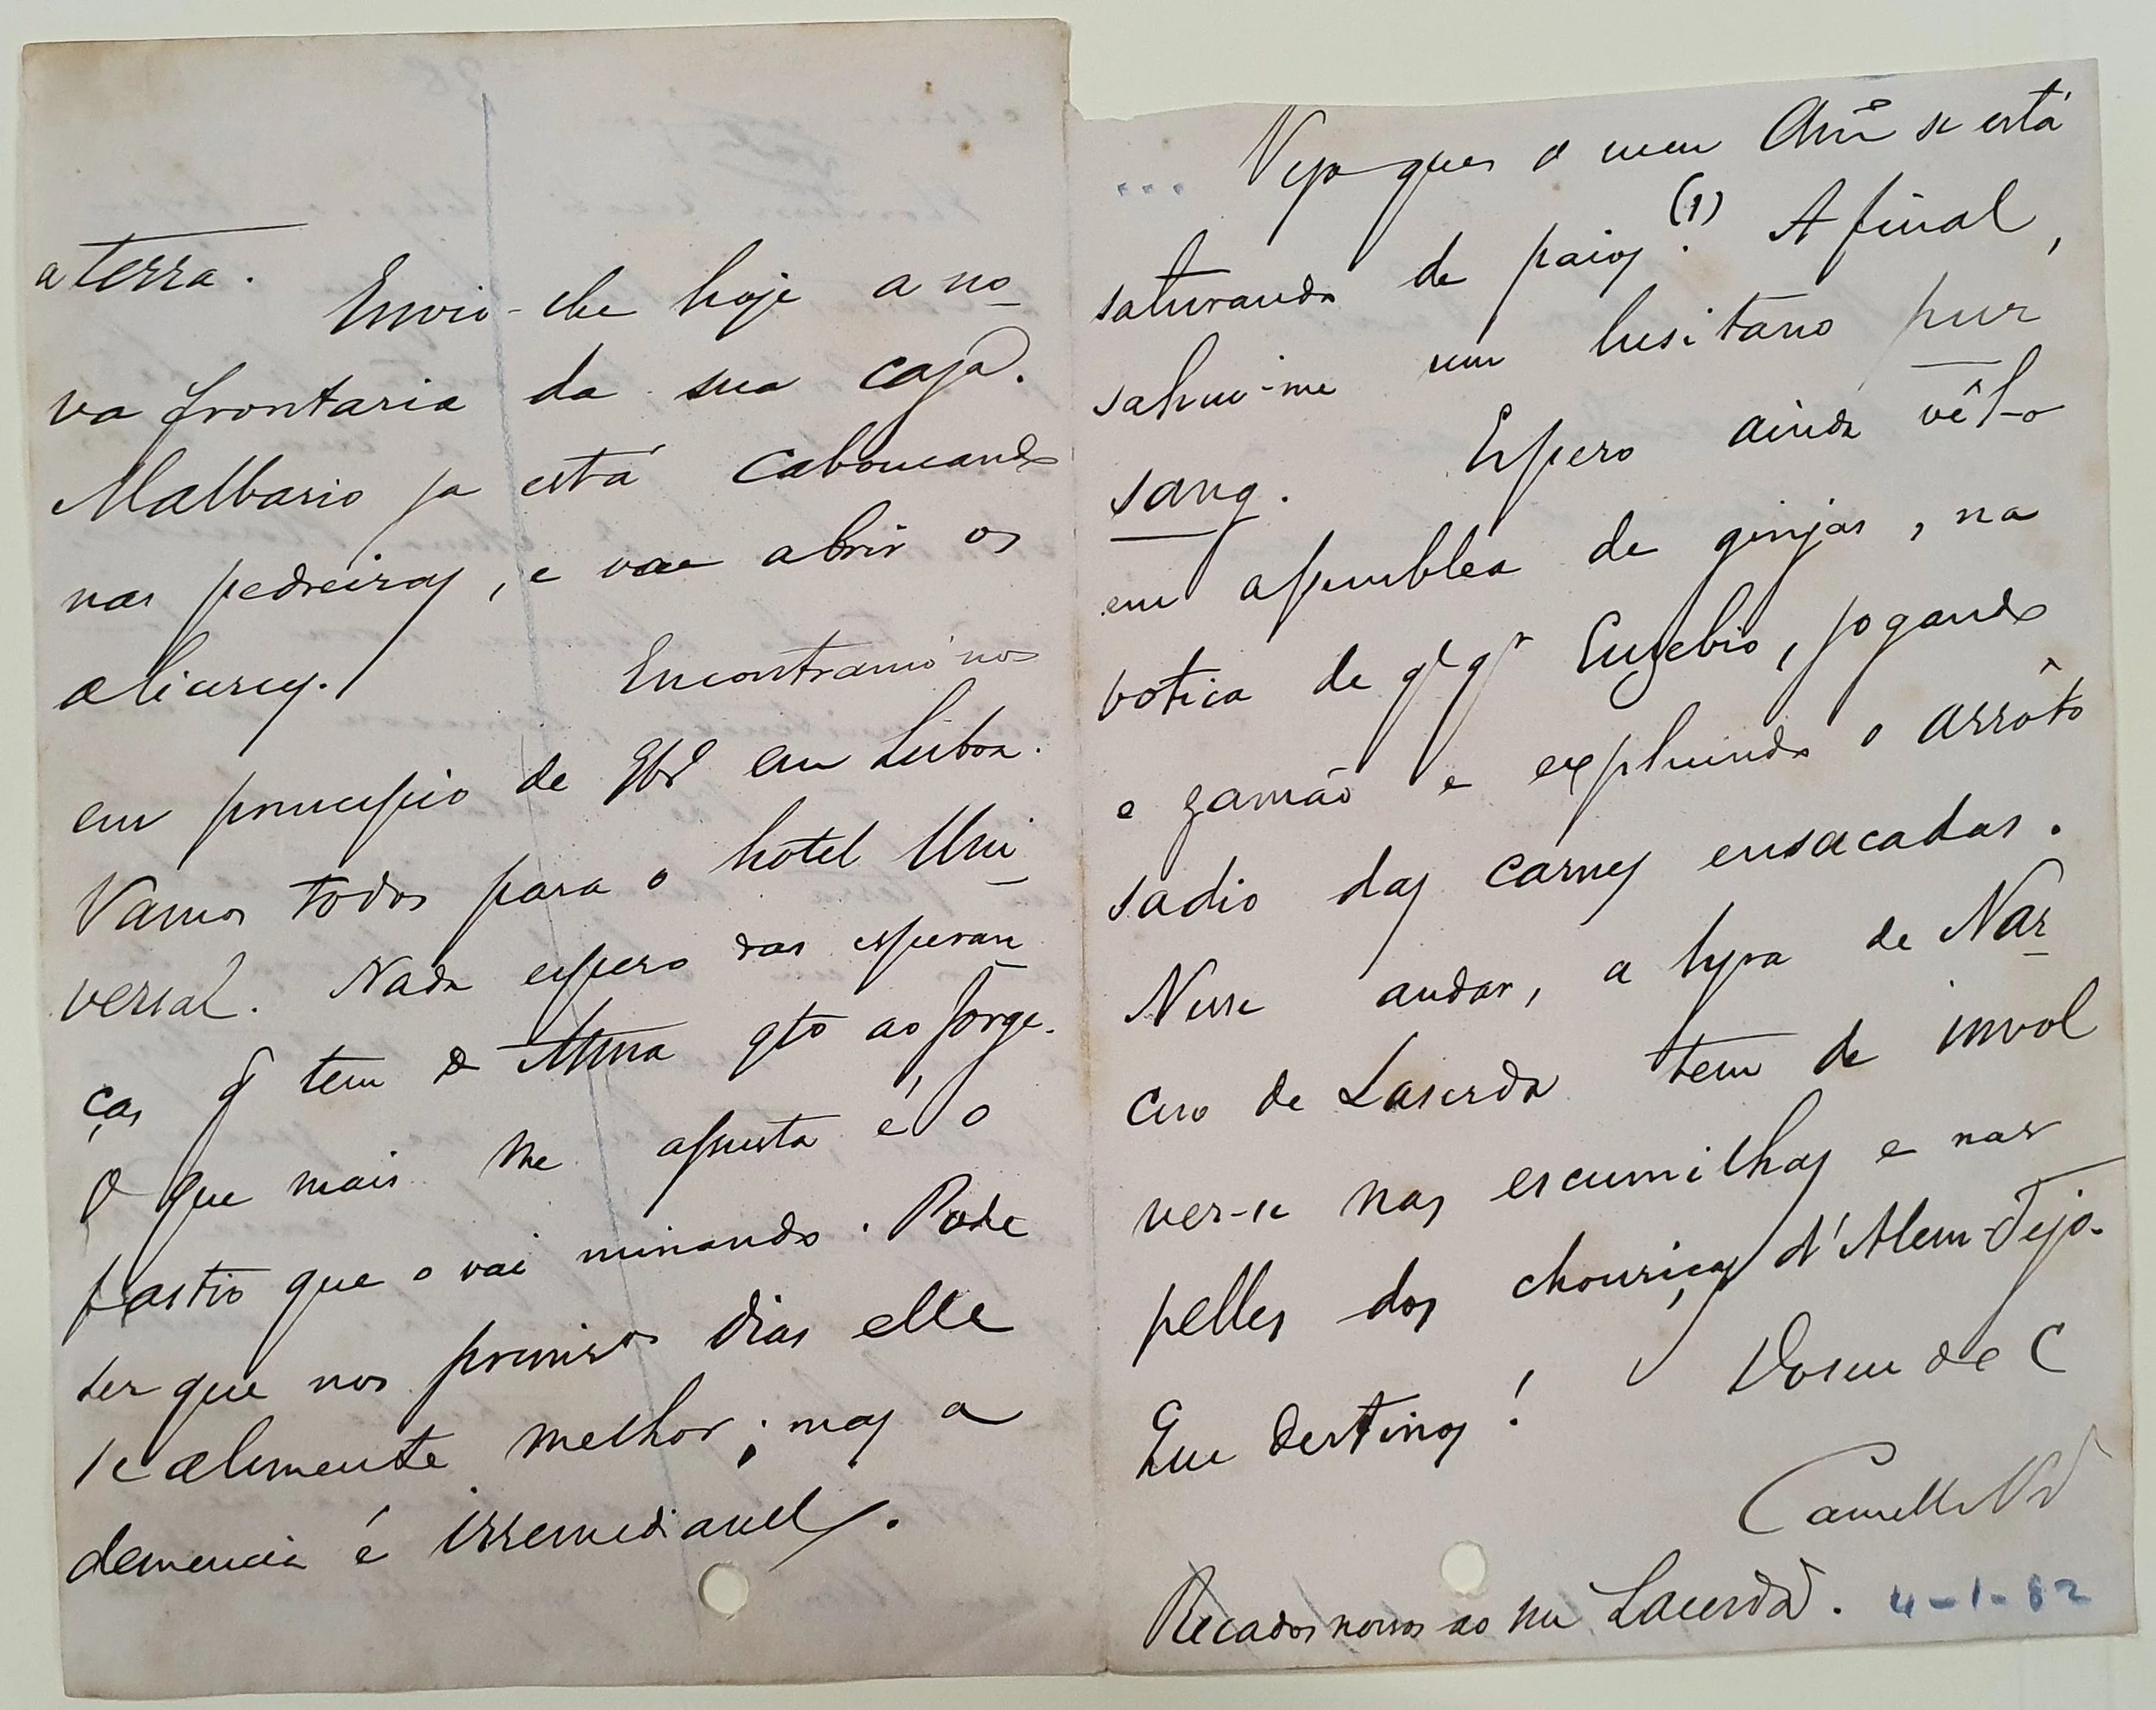 a terra.
Envio-lhe hoje a no-
va frontaria da sua casa.
Malvario ja está caboucando
nas pedreiras, e vae abrir os
alicerces.
Encontramo'nos
em principio de em Lisboa.
Vamos todos para o hotel Uni-
versal. Nada espero das esperan-
ças q̃ tem a Anna qto ao Jorge.
O que mais me assusta é o
fastio que o vai minando. Pode
ser que nos primros dias elle
se alimente melhor; mas a
demencia é irremediavel.
... Vejo que o meu Amº se está
saturando de paios (1). Afinal,
sahiu-me um lusitano pur
sang.
Espero ainda vêl-o
em assemblea de ginjas, na
botica de qlqr Euzebio, jogando
o gamão e expluindo o arrôto
sadio das carnes ensacadas.
Nesse andar, a lyra de Nar-
ciso de Laserda tem de invol
ver-se nas escumilhas e nas
pelles dos chouriços d'Alem-Tejo.
Que destinos!
De seu de C
Camillo
Recados nossos ao Lacerda. 4-1-82